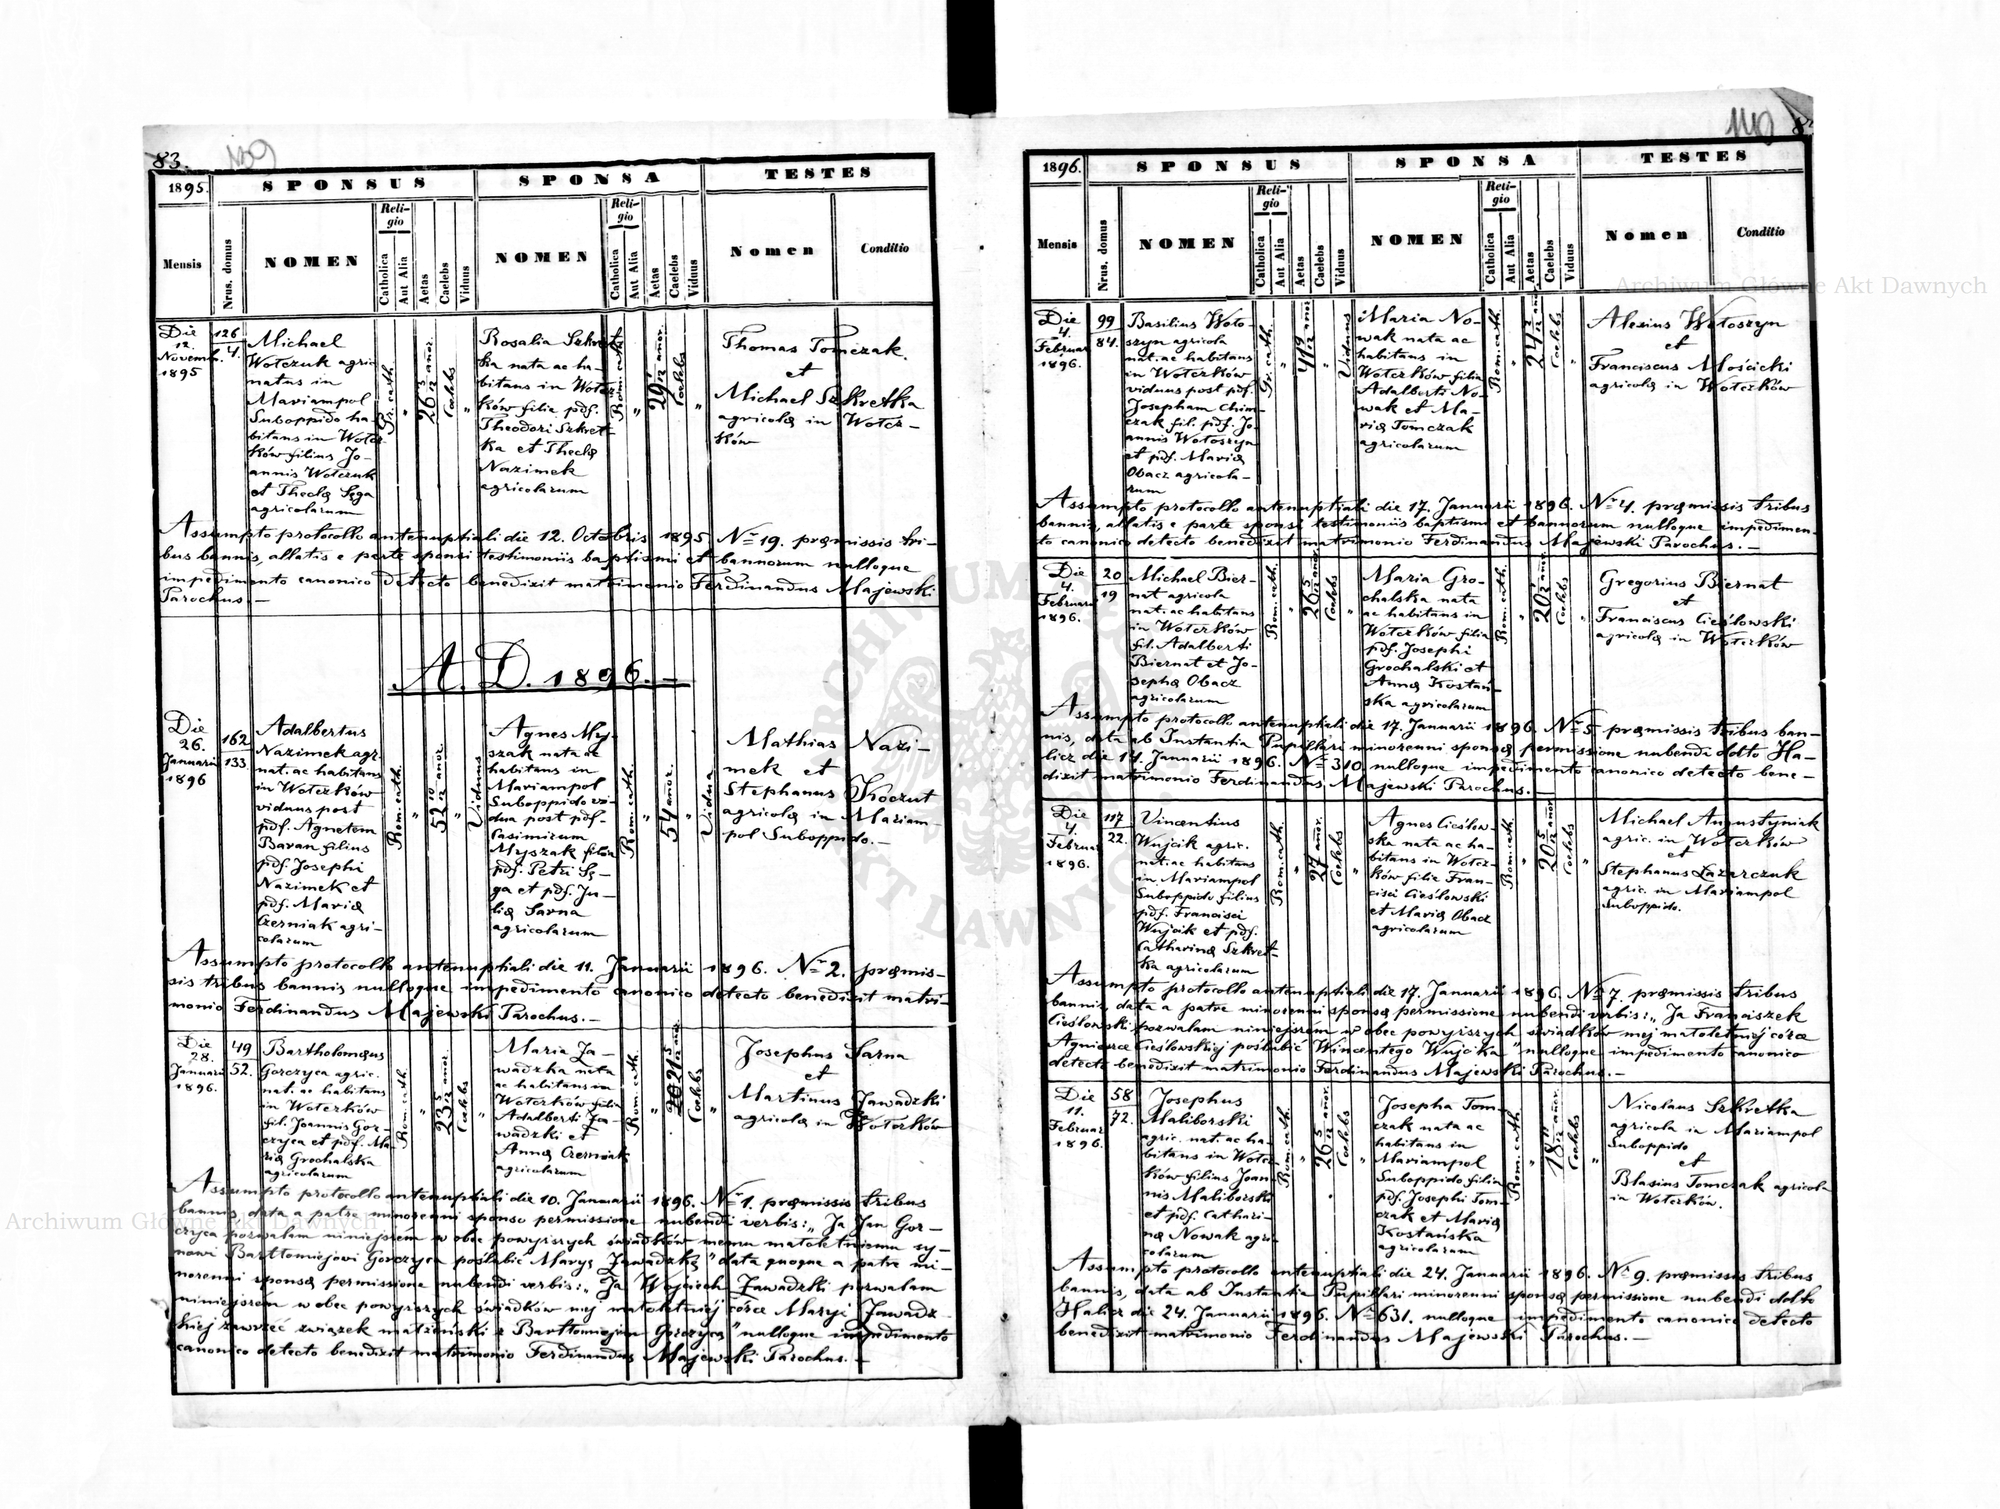 83. 139
1895. SPONSUS SPONSA TESTES
Mensis Nrus. domus NOMEN Religio Catholica Aut Alia Aetas Caelebs Viduus NOMEN Religio Catholica Aut Alia Aetas Caelebs Viduus Nomen Conditio
Die
12.
Novemb.
1895
126
4.
Michael
Wołczuk agric.
natus in
Mariampol
Suboppido ha-
bitans in Wołcz-
ków filius Jo-
annis Wołczuk
et Theclę Sęga
agricolarum
Gr. cath.
"
26 5/12 añor.
Caelebs
"
Rosalia Szkret-
ka nata ac ha-
bitans in Wołcz-
ków filia pdf.
Theodori Szkret-
ka et Theclę
Nazimek
agricolarum
Rom. cath.
"
29 1/12 añor.
Caelebs
"
Thomas Tomczak.
et
Michael Szkretka
agricolę in Wołcz-
ków
Assumpto protocollo antenuptiali die 12. Octobris 1895 Nr 19. pręmissis tri-
bus bannis, allatis e parte sponsi testimoniis baptismi et bannorum nulloque
impedimento canonico detecto benedixit matrimonio Ferdinandus Majewski
Parochus. —
A. D. 1896. —
Die
26.
Januarii
1896
162
133
Adalbertus
Nazimek agr.
nat. ac habitans
in Wołczków
viduus post
pdf. Agnetem
Baran filius
pdf. Josephi
Nazimek et
pdf. Marię
Czerniak agri-
colarum
Rom. cath.
"
52 10/12 añor.
"
Viduus
Agnes My-
szak nata ac
habitans in
Mariampol
Suboppido vi-
dua post pdf.
Casimirum
Myszak filia
pdf. Petri Sę-
ga et pdf. Ju-
lię Sarna
agricolarum
Rom. cath.
"
54 añor.
"
Vidua
Mathias Nazi-
mek et
Stephanus Koczut
agricolę in Mariam-
pol Suboppido. —
Assumpto protocollo antenuptiali die 11. Januarii 1896. Nr 2. pręmis-
sis tribus bannis nulloque impedimento canonico detecto benedixit matri-
monio Ferdinandus Majewski Parochus. —
Die
28.
Januarii
1896.
49
52.
Bartholomęus
Gorczyca agric.
nat. ac habitans
in Wołczków
fil. Joannis Gor-
czyca et pdf. Ma-
rię Grochalska
agricolarum
Rom. cath.
"
23 5/12 añor.
Caelebs
"
Maria Za-
wadzka nata
ac habitans in
Wołczków filia
Adalberti Za-
wadzki et
Annę Czerniak
agricolarum
Rom. cath.
"
21 5/12 añor.
Caelebs
"
Josephus Sarna
et
Martinus Zawadzki
agricolę in Wołczków
Assumpto protocollo antenuptiali die 10. Januarii 1896. Nr 1. pręmissis tribus
bannis, data a patre minorenni sponso permissione nubendi verbis: „Ja Jan Gor-
czyca pozwalam niniejszem w obec powyższych świadków memu małoletniemu sy-
nowi Bartłomiejowi Gorczyca poślubić Maryę Zawadzkę" data quoque a patre mi-
norenni sponsę permissione nubendi verbis: „Ja Wojciech Zawadzki pozwalam
niniejszem w obec powyższych świadków mej małoletniej córce Maryi Zawadz-
kiej zawrzeć związek małżeński z Bartłomiejem Gorczycą" nulloque impedimento
canonico detecto benedixit matrimonio Ferdinandus Majewski Parochus. —
140 8
1896. SPONSUS SPONSA TESTES
Mensis Nrus. domus NOMEN Religio Catholica Aut Alia Aetas Caelebs Viduus NOMEN Religio Catholica Aut Alia Aetas Caelebs Viduus Nomen Conditio
Die
4.
Februar.
1896.
99
84.
Basilius Woło-
szyn agricola
nat. ac habitans
in Wołczków
viduus post pdf.
Josepham Chim-
czak fil. pdf. Jo-
annis Wołoszyn
et pdf. Marię
Obacz agricola-
rum
Gr. cath.
"
"
Viduus
Maria No-
wak nata ac
habitans in
Wołczków filia
Adalberti No-
wak et Ma-
rię Tomczak
agricolarum
Rom. cath.
"
Caelebs
"
Alexius Wołoszyn
et
Franciscus Mościcki
agricolę in Wołczków
Assumpto protocollo antenuptiali die 17. Januarii 1896. Nr 4. pręmissis tribus
bannis, allatis e parte sponsi testimoniis baptismi et bannorum nulloque impedimen-
to canonico detecto benedixit matrimonio Ferdinandus Majewski Parochus. —
Die
4.
Februarii
1896.
20
19
Michael Bier-
nat agricola
nat. ac habitans
in Wołczków
fil. Adalberti
Biernat et Jo-
sephę Obacz
agricolarum
Rom. cath.
"
26 5/12 añor.
Caelebs
"
Maria Gro-
chalska nata
ac habitans in
Wołczków filia
pdf. Josephi
Grochalski et
Annę Kostań-
ska agricolarum
Rom. cath.
"
20 1/12 añor.
Caelebs
"
Gregorius Biernat
et
Franciscus Cieślowski
agricolę in Wołczków
Assumpto protocollo antenuptiali die 17. Januarii 1896. Nr 5. pręmissis tribus ban-
nis, data ab Instantia Pupillari minorenni sponsę permissione nubendi ddto Ha-
licz die 14. Januarii 1896. Nr 310. nulloque impedimento canonico detecto bene-
dixit matrimonio Ferdinandus Majewski Parochus. —
Die
4.
Februar.
1896.
117
22.
Vincentius
Wujcik agric.
nat. ac habitans
in Mariampol
Suboppido filius
pdf. Francisci
Wujcik et pdf.
Catharinę Szkret-
ka agricolarum
Rom. cath.
"
27 añor.
Caelebs
"
Agnes Cieślow-
ska nata ac ha-
bitans in Wołcz-
ków filia Fran-
cisci Cieślowski
et Marię Obacz
agricolarum
Rom. cath.
"
20 5/12 añor.
Caelebs
"
Michael Augustyniak
agric. in Wołczków
et
Stephanus Łazarczuk
agric. in Mariampol
Suboppido.
Assumpto protocollo antenuptiali die 17. Januarii 1896. Nr 7. pręmissis tribus
bannis, data a patre minorenni sponsę permissione nubendi verbis: „Ja Franciszek
Cieślowski pozwalam niniejszem w obec powyższych świadków mej małoletniej córce
Agnieszce Cieślowskiej poślubić Wincentego Wujcika" nulloque impedimento canonico
detecto benedixit matrimonio Ferdinandus Majewski Parochus. —
Die
11.
Februar.
1896.
58
72.
Josephus
Maliborski
agric. nat. ac ha-
bitans in Wołcz-
ków filius Joan-
nis Maliborski
et pdf. Cathari-
nę Nowak agri-
colarum
Rom. cath.
"
26 5/12 añor.
Caelebs
"
Josepha Tom-
czak nata ac
habitans in
Mariampol
Suboppido filia
pdf. Josephi Tom-
czak et Marię
Kostańska
agricolarum
Rom. cath.
"
18 11/12 añor.
Caelebs
"
Nicolaus Szkretka
agricola in Mariampol
Suboppido
et
Blasius Tomczak agricola
in Wołczków.
Assumpto protocollo antenuptiali die 24. Januarii 1896. Nr 9. pręmissis tribus
bannis, data ab Instantia Pupillari minorenni sponsę permissione nubendi ddto
Halicz die 24. Januarii 1896. Nr 631. nulloque impedimento canonico detecto
benedixit matrimonio Ferdinandus Majewski Parochus. —
Archiwum Główne Akt Dawnych
Archiwum Główne Akt Dawnych
ARCHIWUM GŁÓWNE AKT DAWNYCH